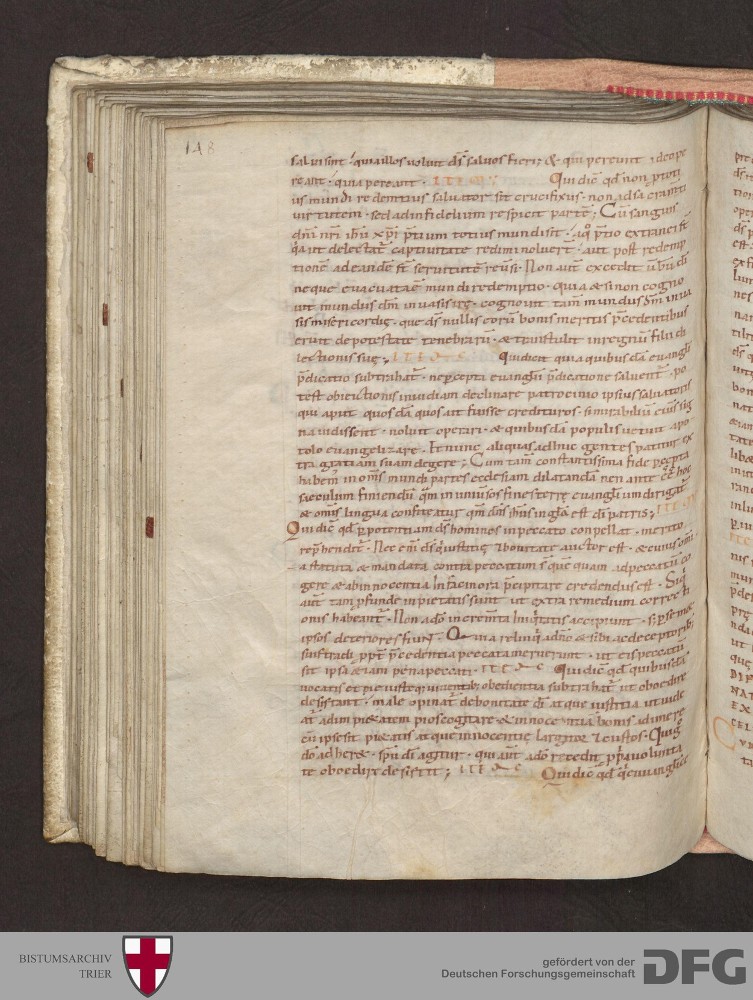 148
salui sint · quia illos uoluit ds̄ saluos fieri; & qui pereunt · ideo pe
reant · quia pereant · ITEM
Qui dic̄ qd̄ non p toti
us mundi redemtius saluator sit crucifixus · non ad sacramti
uirtutem · sed ad infidelium respicit partē; Cū sanguis
dn̄i nr̄i ihū xp̄i p̄tium totius mundi sit · a q̊ p̄tio extranei st̄
qui aut delectati captiuitate redimi noluert̄ · aut post redemp
tionē ad eandē st̄ seruitutē reuersi · Non aut̄ excedit uerbū dī
neque euacuata ē mundi redemptio · quia & si non cogno
uit mundus dm̄ in uasis irę · cognouit tam̄ mundus dm̄ in ua
sis misericordię · que ds̄ nullis eorū bonis meritis p̄cedentibus
eruit de potestate tenebrarū · & transtulit in regnū filii di
lectionis suę; ITEM
Qui dicit quia quibusdā euangłii
p̄dicatio subtrahat̄ · ne p̄cepta euangłii p̄dicatione saluent̄ · po
test obiectionis inuidiam declinare patrocinio ipsius saluatoris
qui aput quosdā quos ait fuisse credituros · si mirabiliū eius sig
na uidissent · noluit operari · & quibusdā populis uetuit apo
tolo euangelizare · Et nunc aliquas adhuc gentes patitur ex
tra gratiam suam degere; Cum tam̄ constantissima fide p̄cepta
habem̄ in om̄s mundi partes ecclesiam dilatandā nec ante cē hoc
saeculum finiendū qm̄ in uniuersos fines terrę euangłiū dirigat̄
& om̄is lingua confiteatur qm̄ dn̄s ihs̄ in głā est dī patris; ITEM
Qui dic̄ qd̄ p potentiam ds̄ homines in peccato conpellat · merito
rep̄hendit̄ · Nec enī ds̄ q̄ iustitię & bonitatis auctor est · & cuius om̄i
a statuta & mandata contra peccatum s̄ quenquam ad peccatū co
gere & ab innocentia in facinora p̄cipitare credendus est · Siq̄
aut̄ tam p̄funde inpietatis sunt ut extra remedium correcti
onis habeant̄ · Non a dō incrementa iniquitatis accipiunt · s̄ p semet
ipsos deteriores fiunt̄ · Quia relinqui a dn̄o & sibi ac deceptorib;
suis tradi p̄pt̄ p̄cedentia peccata meruerunt · ut eis peccatū
sit ipsa etiam pena peccati · ITEM
Qui dic̄ qd̄ quibusdā
uocatis et pie iusteq; uiuentib; obedientia subtrahat̄ ut obedire
desistant · male opinat̄ de bonitate dī atque iustitia ut uide
at̄ ad impietatem pios cogitare · & innocentiā bonis adimere
cū ipse sit pietatis atque innocentię largitor & custos · Quiq;
dō adheret · spū dī agitur · qui aut̄ a dō recedit p̄pria uolunta
te obedire desistit; ITEM
Qui dic̄ qd̄ q̄ euangłicę
BISTUMSARCHIV
TRIER
gefördert von der
Deutschen Forschungsgemeinschaft
DFG